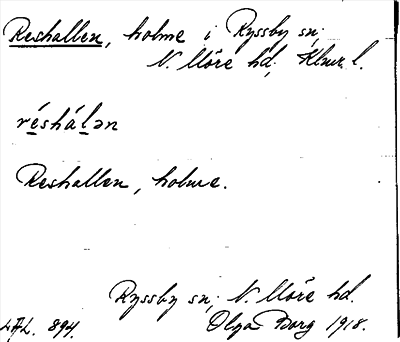 Reshallen, holme i Ryssby sn;
N. Möre hd; Klmr l.
réshálən
Reshallen, holme.
Ryssby sn; N. Möre hd.
894. Olga Borg 1918.